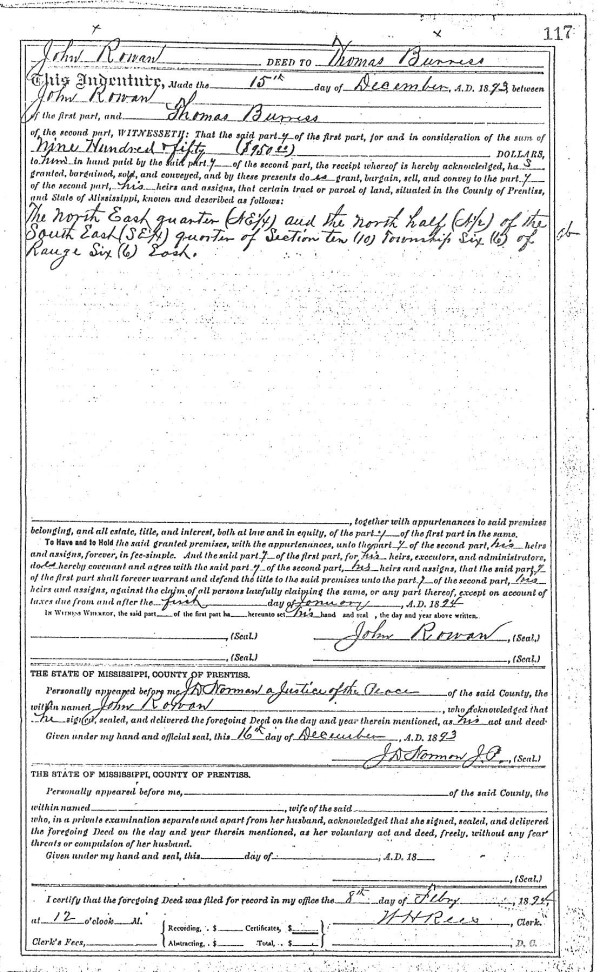 117
John Rowan DEED TO Thomas Burress
This Indenture, Made the 15th day of December, A.D. 1893, between
John Rowan
of the first part, and Thomas Burress
of the second part, WITNESSETH: That the said party of the first part, for and in consideration of the sum of
Nine Hundred & fifty ($950.00) DOLLARS,
to him in hand paid by the said party of the second part, the receipt whereof is hereby acknowledged, has
granted, bargained, sold, and conveyed, and by these presents do es grant, bargain, sell, and convey to the party
of the second part, his heirs and assigns, that certain tract or parcel of land, situated in the County of Prentiss,
and State of Mississippi, known and described as follows:
The North East quarter (NE¼) and the North half (N½) of the
South East (SE¼) quarter of Section ten (10) Township Six (6) of
Range Six (6) East.
, together with appurtenances to said premises
belonging, and all estate, title, and interest, both at law and in equity, of the party of the first part in the same.
To Have and to Hold the said granted premises, with the appurtenances, unto the party of the second part, his heirs
and assigns, forever, in fee-simple. And the said party of the first part, for his heirs, executors, and administrators,
does hereby covenant and agree with the said party of the second part, his heirs and assigns, that the said party
of the first part shall forever warrant and defend the title to the said premises unto the party of the second part, his
heirs and assigns, against the claim of all persons lawfully claiming the same, or any part thereof, except on account of
taxes due from and after the first day of January, A.D. 1894
IN WITNESS WHEREOF, the said part of the first part ha hereunto set his hand and seal, the day and year above written.
(Seal.) John Rowan, (Seal.)
(Seal.) , (Seal.)
THE STATE OF MISSISSIPPI, COUNTY OF PRENTISS.
Personally appeared before me J D Norman a Justice of the Peace of the said County, the
within named John Rowan, who acknowledged that
he signed, sealed, and delivered the foregoing Deed on the day and year therein mentioned, as his act and deed.
Given under my hand and official seal, this 16th day of December, A.D. 1893
J D Norman J.P., (Seal.)
THE STATE OF MISSISSIPPI, COUNTY OF PRENTISS.
Personally appeared before me, of the said County, the
within named , wife of the said
who, in a private examination separate and apart from her husband, acknowledged that she signed, sealed, and delivered
the foregoing Deed on the day and year therein mentioned, as her voluntary act and deed, freely, without any fear
threats or compulsion of her husband.
Given under my hand and seal, this day of , A.D. 18
, (Seal.)
I certify that the foregoing Deed was filed for record in my office the 8th day of Feby, 1894,
at 12 o'clock M. Recording, $ Certificates, $ W H Rees, Clerk.
Clerk's Fees, Abstracting, $ Total, $ D. C.